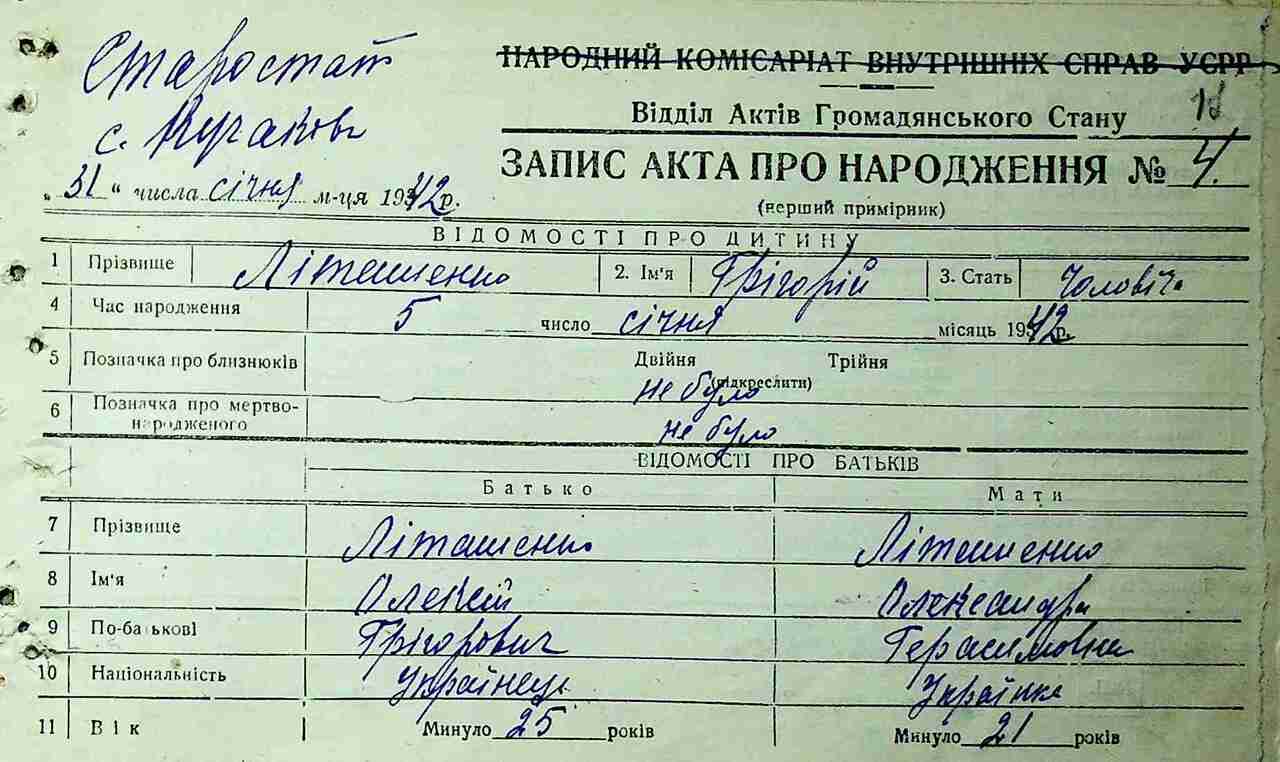 Старостат
с. Кучаково
НАРОДНИЙ КОМІСАРІАТ ВНУТРІШНІХ СПРАВ УСРР
Відділ Актів Громадянського Стану
ЗАПИС АКТА ПРО НАРОДЖЕННЯ № 4.
„31“ числа січня м-ця 1942 р.
(перший примірник)
ВІДОМОСТІ ПРО ДИТИНУ
1 Прізвище Літашенко 2. Ім'я Грігорій 3. Стать Чоловіч.
4 Час народження 5 число січня місяць 1942 р.
5 Позначка про близнюків Двійня Трійня
(підкреслити)
не було
6 Позначка про мертво-
народженого
не було
ВІДОМОСТІ ПРО БАТЬКІВ
Батько Мати
7 Прізвище Літашенко Літашенко
8 Ім'я Олексій Олександра
9 По-батькові Грігорович Герасимовна
10 Національність Українець Українка
11 Вік Минуло 25 років Минуло 21 років